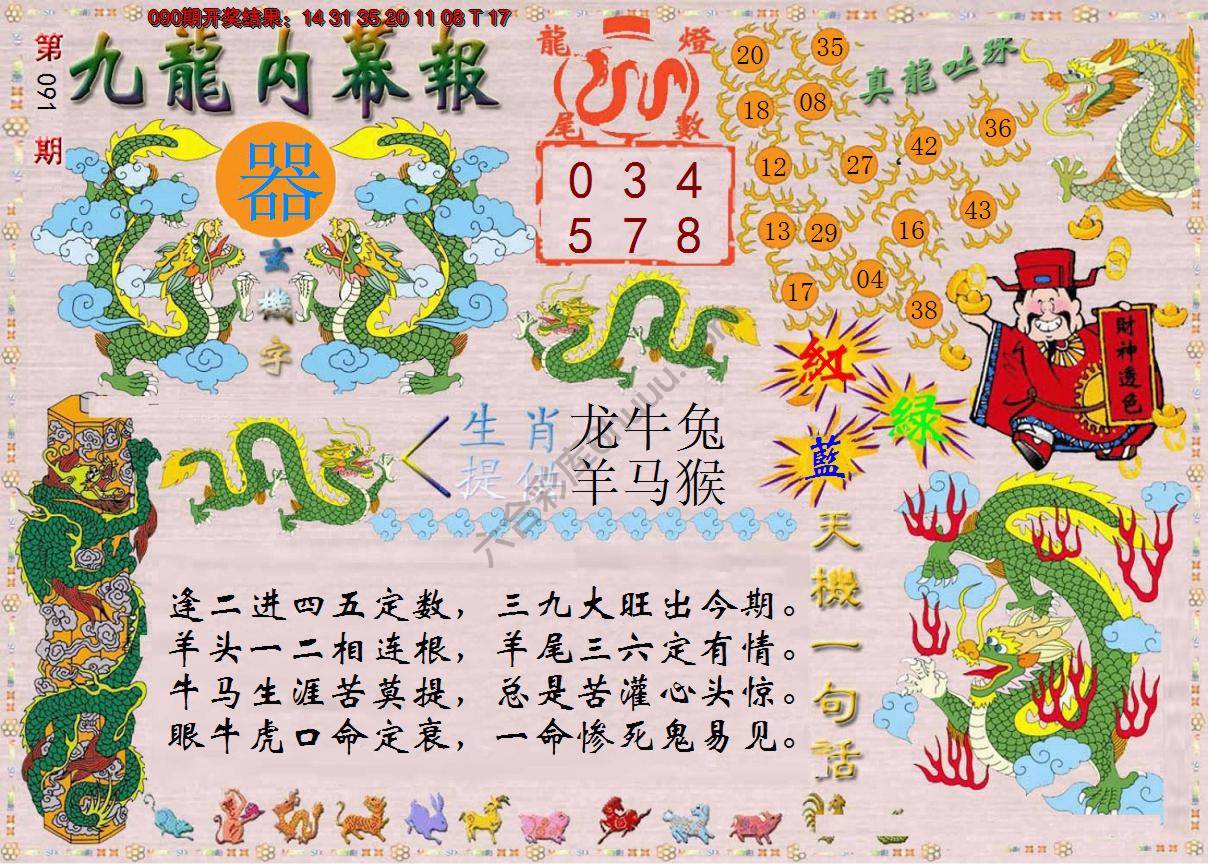 090期开奖结果：14 31 35 20 11 08 T 17
第 091 期
九龍内幕報
器
玄機字
龍燈尾數
0 3 4
5 7 8
真龍吐珠
20 35
18 08
42 36
12 27
13 29 16 43
17 04
38
財神透色
紅
綠
藍
生肖
提供
龙牛兔
羊马猴
天機一句話
逢二进四五定数，三九大旺出今期。
羊头一二相连根，羊尾三六定有情。
牛马生涯苦莫提，总是苦灌心头惊。
眼牛虎口命定衰，一命惨死鬼易见。